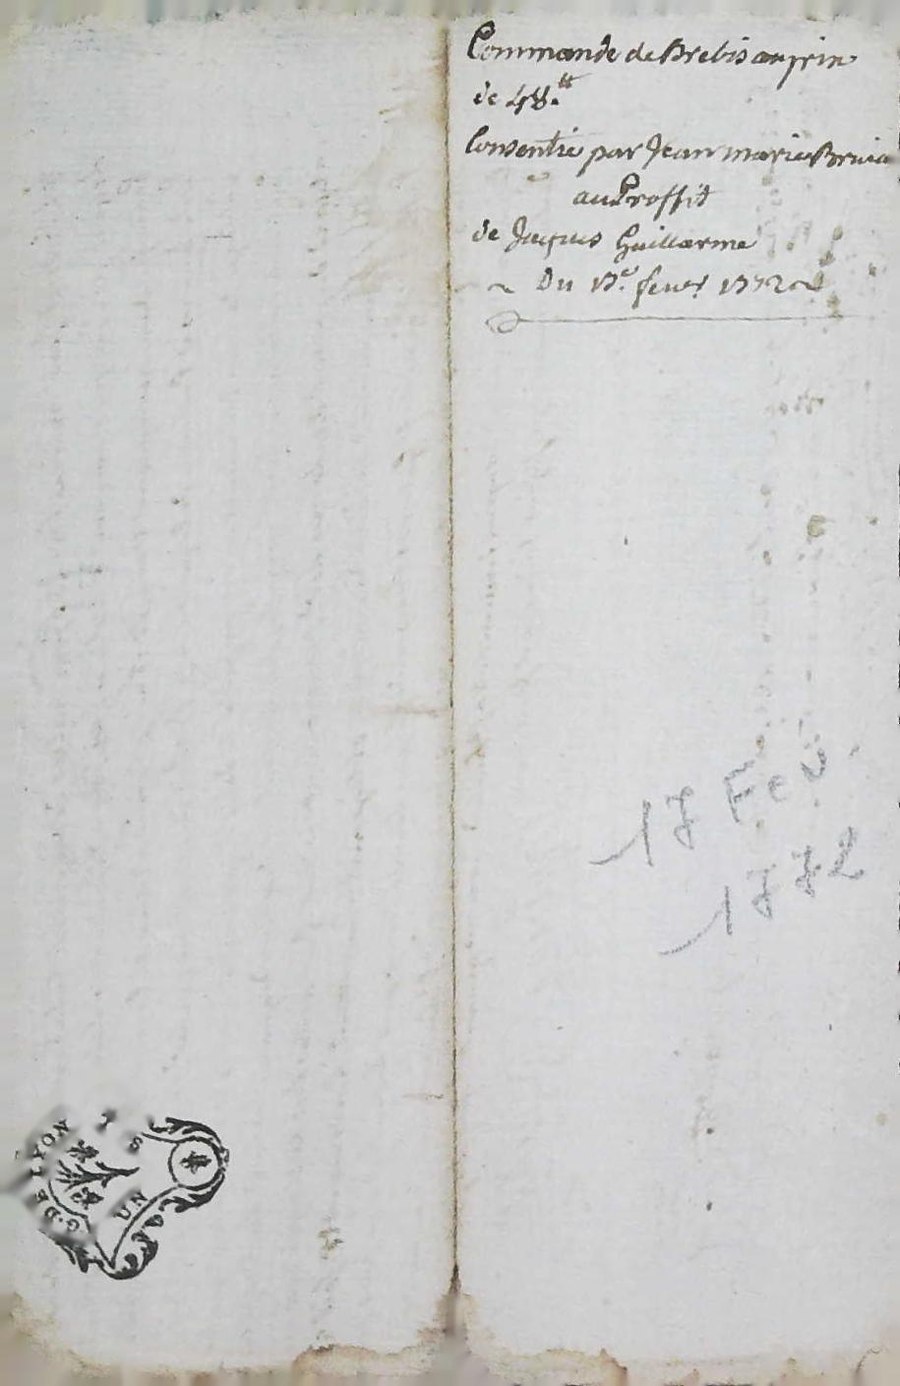 Commande de Brebis au prix
de 48.tt
Consentie par Jean marie
au Proffit
de Jaques Guillarme
Du 17e fevr. 1772
17 Fev.
1772
G. DE LYON
UN
S